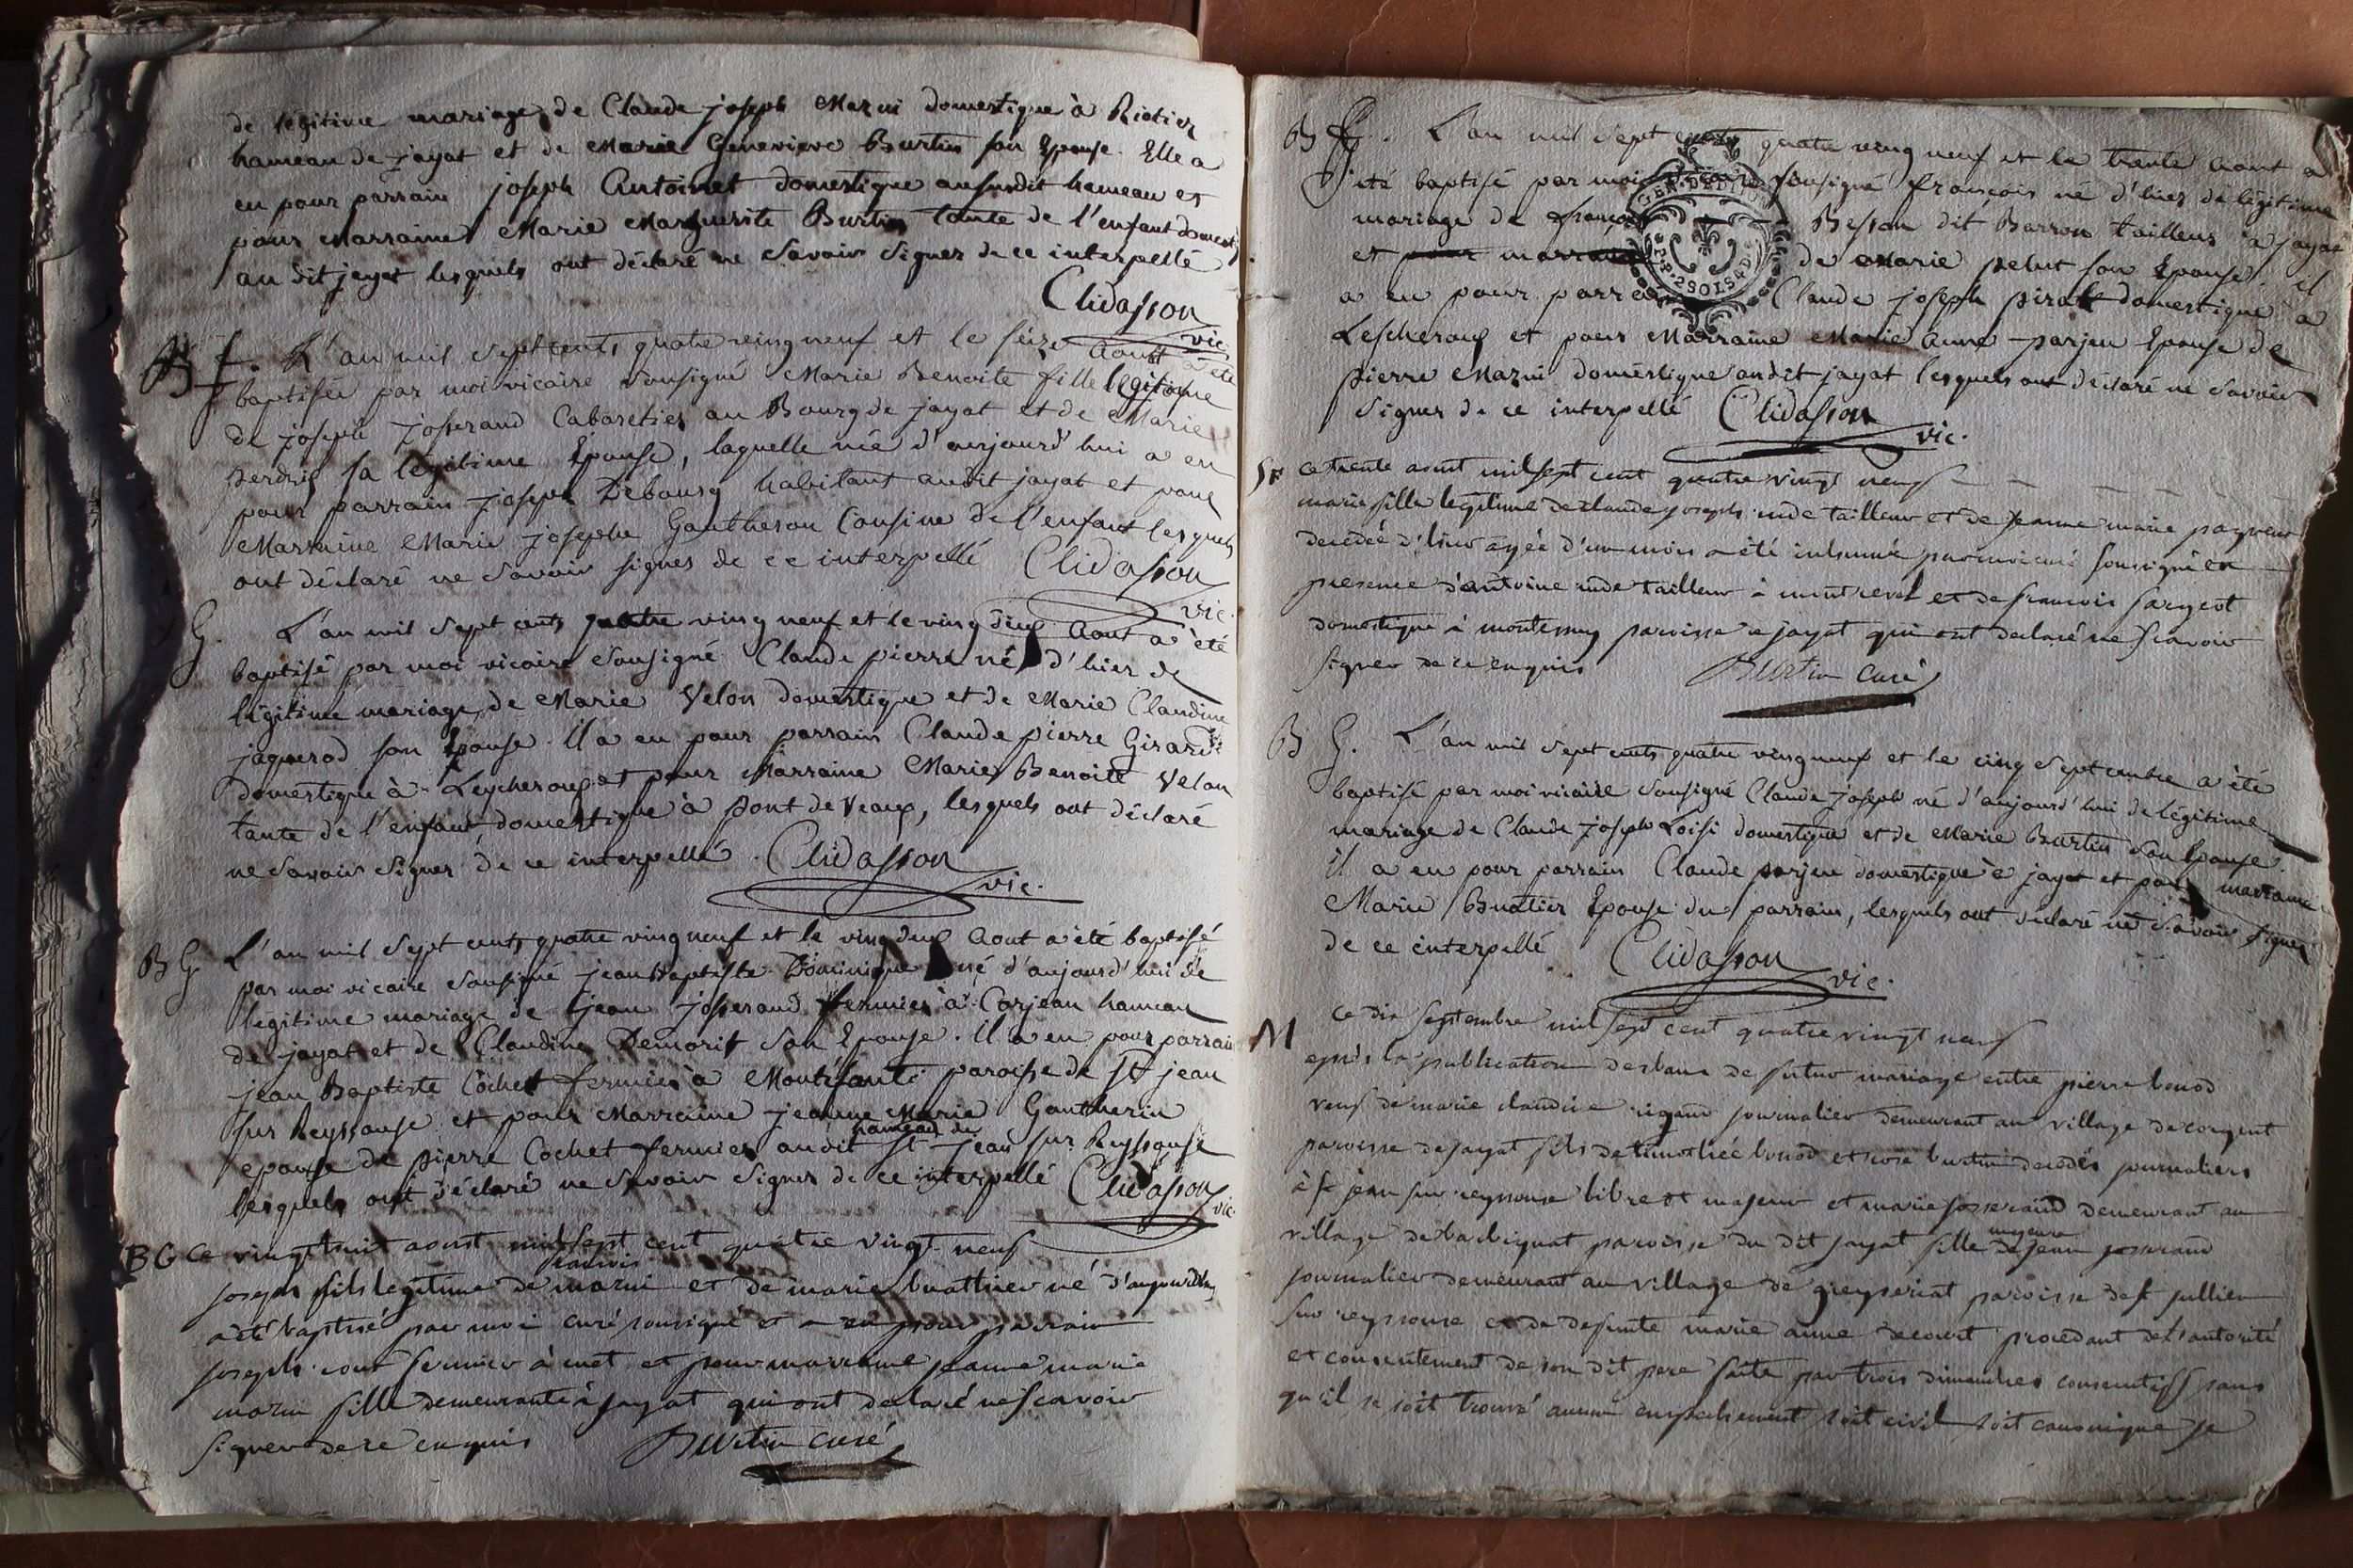 de légitime mariage de Claude joseph Mazui domestique à
hameau de jayat et de Marie Genevieve Burtin son Epouse. Elle a
eu pour parrain joseph Antoinet domestique au susdit hameau et
pour Marraine Marie Marguerite Burtin tante de l'enfant domestiq
au dit jayat lesquels ont déclaré ne Savoir Signer de ce interpellé
Clidasson
vic.
B f. L'an mil Sept cents quatre ving neuf et le seize Aout a été
baptisée par moi vicaire Sousigné Marie Benoite fille légitime
de joseph josserand Cabaretier au Bourg de jayat et de Marie
perdrix sa légitime Epouse, laquelle née d'aujourd'hui a eu
pour parrain joseph Debourg habitant audit jayat et pour
Marraine Marie josephe Gautheron Cousine de l'enfant lesquels
ont déclaré ne Savoir signer de ce interpellé Clidasson
vic.
G. L'an mil Sept cents quatre ving neuf et le ving deux Aout a été
baptisé par moi vicaire Sousigné Claude pierre né d'hier de
légitime mariage de Marie Velon domestique et de Marie Claudine
jaquerod son Epouse. Il a eu pour parrain Claude pierre Girard
domestique à Leycheroux et pour Marraine Marie Benoite Velon
tante de l'enfant domestique à pont de Veaux, lesquels ont déclaré
ne Savoir Signer de ce interpellé. Clidasson
vic.
B G L'an mil Sept cents quatre ving neuf et le ving deux Aout a été baptisé
par moi vicaire Sousigné jean Baptiste Dominique né d'aujourd'hui de
légitime mariage de jean josserand fermier à Corjean hameau
de jayat et de Claudine Demorit Son Epouse. Il a eu pour parrain
jean Baptiste Cochet fermier à paroisse de St jean
sur Reyssouse et pour Marraine jeanne Marie Gautherin
hameau de
epouse de pierre Cochet fermier audit St jean sur Reyssouse
lesquels ont déclaré ne Savoir Signer de ce interpellé Clidasson
vic.
B G Ce vingthuit aoust mil sept cent quatre vingt neuf
francois
joseph fils legitime de mazui et de marie buathier né d'aujourdhuy
a été baptisé par moi curé sousigné et a eu pour parrain
joseph fermier à et pour marraine jeanne marie
mazui fille demeurante à jayat qui ont declaré ne scavoir
signer de ce enquis Burtin curé
B G. L'an mil Sept cents quatre ving neuf et le trente Aout a
été baptisé par moi Sousigné françois né d'hier de légitime
mariage de françois Besson dit Barron tailleur à jayat
et pour marraine de Marie pelut son Epouse. il
a eu pour parrain Claude joseph pirat domestique à
Lescheroux et pour Marraine Marie Anne parjeu Epouse de
pierre Mazui domestique audit jayat lesquels ont déclaré ne Savoir
Signer de ce interpellé Clidasson
vic.
SF ce trente aoust mil sept cent quatre vingt neuf
marie fille legitime de claude joseph tailleur et de jeanne marie
decedée d'hier agée d'un mois a été inhumée par moi curé sousigné en
presence d'antoine tailleur à montrevel et de francois
domestique à montemoy paroisse de jayat qui ont declaré ne scavoir
signer de ce enquis Burtin curé
B G. L'an mil Sept cents quatre ving neuf et le cinq Septembre a été
baptisé par moi vicaire Sousigné Claude joseph né d'aujourd'hui de légitime
mariage de Claude joseph Loisi domestique et de Marie Burtin Son Epouse.
il a eu pour parrain Claude parjeu domestique à jayat et pour marraine
Marie Buatier Epouse du parrain, lesquels ont déclaré ne Savoir signer
de ce interpellé Clidasson
vic.
M ce dix septembre mil sept cent quatre vingt neuf
après la publication des bans de futur mariage entre pierre bonod
veuf de marie claudine rigaud journalier demeurant au village de corgent
paroisse de jayat fils de timothée bonod et burtin decedés journaliers
à st jean sur reyssouse libre et majeur et marie josserand demeurant au
mineure
village de barbignat paroisse du dit jayat fille de jean josserand
journalier demeurant au village de greyseriat paroisse de st jullien
sur reyssouse et de defunte marie anne procedant de l'autorité
et consentement de son dit pere faite par trois dimanches consecutifs sans
qu'il se soit trouvé aucun empechement soit civil soit canonique je